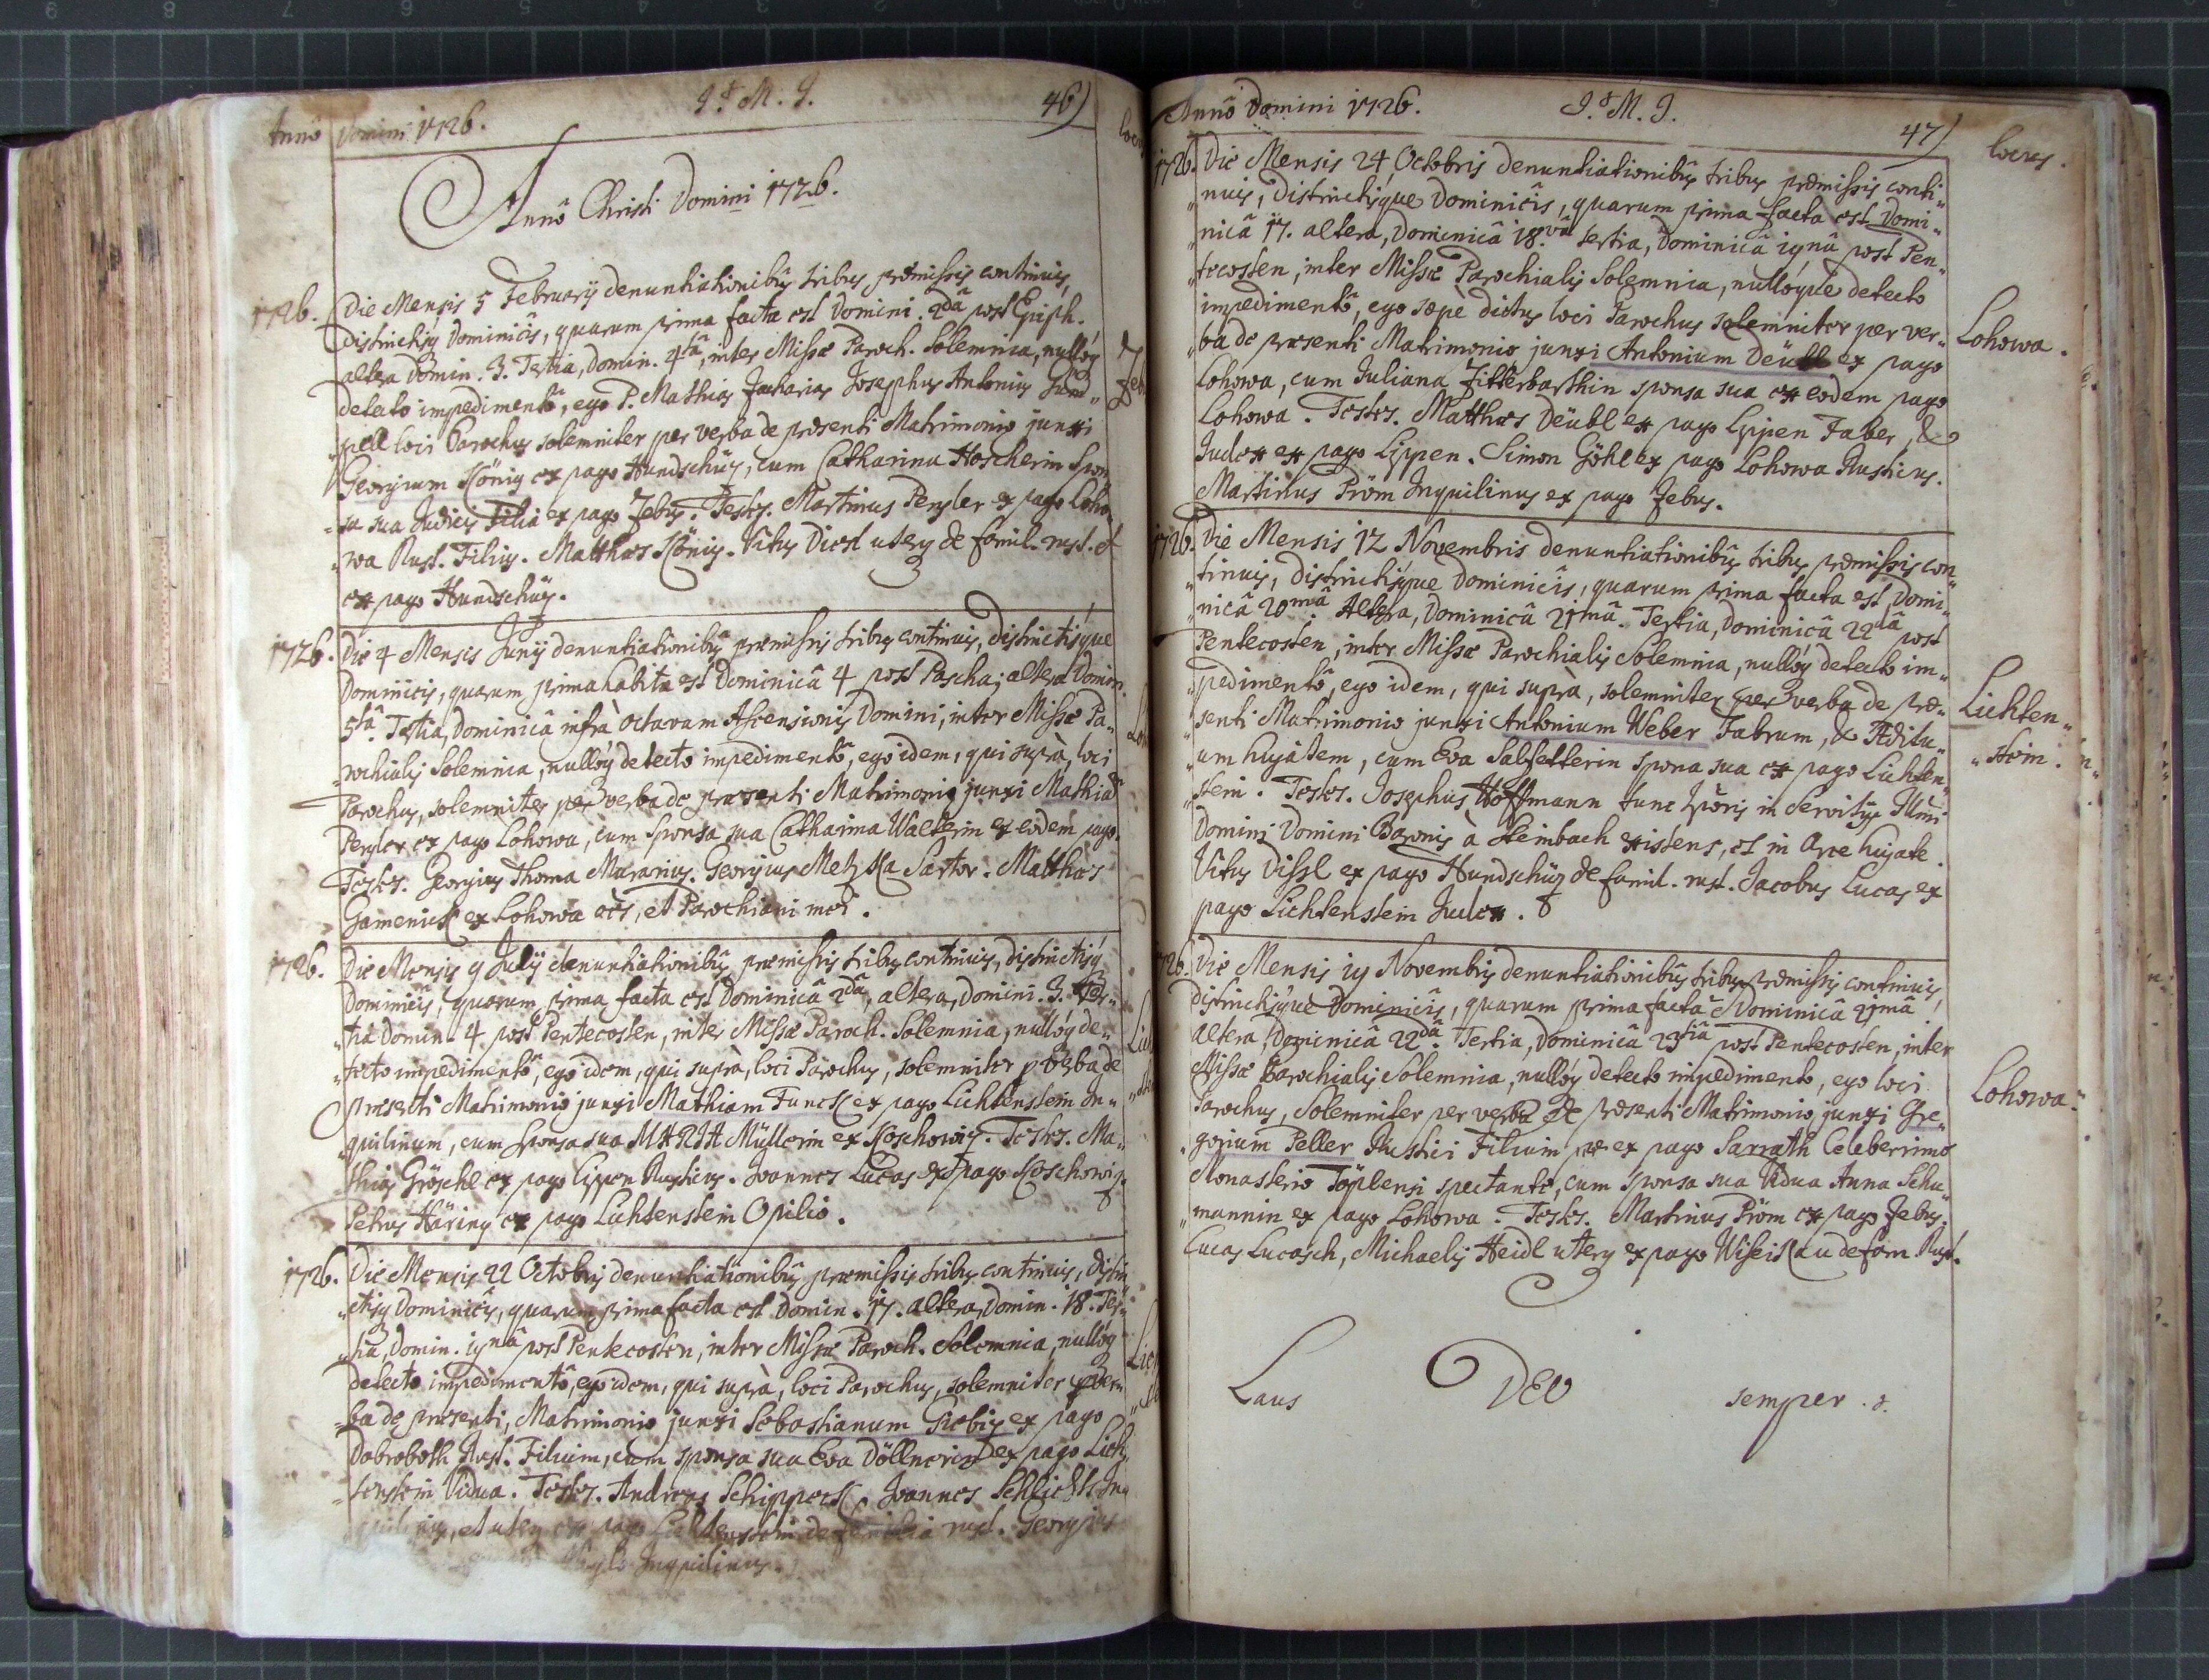 Annô Domini 1726.
J. M. J.
46)
Annô Christi Domini 1726.
1726. Die Mensis 5 Februarij denuntiationibq tribq præmissis continuis,
distinctisq Dominicis, quarum prima facta est Domini. 2dâ post Epiph.
altera Domin. 3. Tertia, Domin. 4tâ, inter Missæ Paroch. Solemnia, nullóq
detecto impedimentô, ego P. Mathias Zacharias Josephus Antonius
loci Parochus solemniter per verba de præsenti Matrimonio junxi
Georgium König ex pago Hundschüz, cum Catharina Hoscherin Spon„
„sa sua Judicis Filia ex pago Zebus. Testes. Martinus Penzler ex pago Loho„
„wa Rust. Filius. Matthæs König. Vitus Diesl uterq de famil. rust. et
ex pago Hundschüz.
1726. Die 4 Mensis Junij denuntiationibq præmissis tribus continuis, distinctisque
Dominicis, quarum prima habita est Dominicâ 4 post Pascha; altera Domin.
5tâ. Tertia, Dominicâ infrà octavam Ascensionis Domini, inter Missæ Pa„
„rochialis Solemnia, nullóq detecto impedimentô, ego idem, qui suprà, loci
Parochus, solemniter per verba de præsenti Matrimonio junxi Mathiam
Penzler ex pago Lohowa, cum Sponsa sua Catharina Walterin ex eodem pago.
Testes. Georgius Thoma Murarius. Georgius Metzka Sartor. Matthæs
Gamenick ex Lohowa oes, et Parochiani mei.
1726. Die Mensis 9 Julij denuntiationibq præmissis tribus continuis, distinctisq
Dominicis, quarum prima facta est Dominicâ 2dâ, altera, Domini. 3. Ter„
„tia Domin. 4. post Pentecosten, inter Missæ Paroch. Solemnia, nullóq de„
„tecto impedimentô, ego idem, qui suprà, loci Parochus, solemniter p verba de
præsenti Matrimonio junxi Mathiam Funck ex pago Lichtenstein In„
„quilinum, cum sponsa sua MARIA Müllerin ex Koschowiz. Testes. Ma„
„thias Gröschl ex pago Lippen Rusticus. Joannes Lucas ex pago Koschowiz.
Petrus Häring ex pago Lichtenstein Opilio.
1726. Die Mensis 22 Octobris denuntiationibq præmissis tribus continuis, distin„
„ctisq Dominicis, quarum prima facta est Domin. 17. altera, Domin. 18. Ter„
„tia, Domin. 19nâ post Pentecosten, inter Missæ Paroch. Solemnia, nullóq
detecto impedimentô, ego idem, qui suprà, loci Parochus, solemniter p ver„
„ba de præsenti, Matrimonio junxi Sebastianum ex pago
Dobroboth Rust. Filium, cum sponsa sua Eva Döllnerin ex pago Lich„
„tenstein Vidua. Testes. Andreas Schippeck, Joannes Schlicht In„
„quilinus, et uterq ex pago Lichtenstein de familia rust. Georgius
Inquilinus.
Annô Domini 1726.
J. M. J.
47)
locus.
1726. Die Mensis 24 Octobris denuntiationibus tribus præmissis conti„
„nuis, distinctisque Dominicis, quarum prima facta est Domi„
„nicâ 17. altera, Dominicâ 18.vâ tertia, Dominicâ 19nâ post Pen„
„tecosten, inter Missæ Parochialis Solemnia, nullóque detecto
impedimentô, ego sæpè dictus loci Parochus solemniter per ver„
„ba de præsenti Matrimonio junxi Antonium Deübl ex pago
Lohowa, cum Juliana Zitterbarthin sponsa sua ex eodem pago
Lohowa. Testes. Matthæs Deübl ex pago Lippen Faber, &
Judex ex pago Lippen. Simon Göhl ex pago Lohowa Rusticus.
Martinus Pröm Inquilinus ex pago Zebus.
Lohowa.
1726. Die Mensis 12 Novembris denuntiationibq tribus præmissis con„
„tinuis, distinctisque Dominicis, quarum prima facta est Domi„
„nicâ 20mâ. Altera, Dominicâ 21mâ. Tertia, Dominicâ 22dâ post
Pentecosten, inter Missæ Parochialis Solemnia, nullóq detecto im„
„pedimentô, ego idem, qui suprà, solemniter per verba de præ„
„senti Matrimonio junxi Antonium Weber Fabrum, & Ædilu„
„um hujatem, cum Eva Salfetterin sponsa sua ex pago Lichten„
„stein. Testes. Josephus Hoffmann tunc in Servitijs Illmi
Domini Domini Baronis à Steinbach existens, et in Arce hujate.
Vitus Dissl ex pago Hundschüz de famil. rust. Jacobus Lucas ex
pago Lichtenstein Judex.
Lichten„
„stein.
1726. Die Mensis 19 Novembris denuntiationibq tribus præmissis continuis,
distinctisque Dominicis, quarum prima facta e Dominicâ 21mâ
altera, Dominicâ 22dâ. Tertia, Dominicâ 23tiâ post Pentecosten, inter
Missæ Parochialis Solemnia, nullóq detecto impedimento, ego loci
Parochus, Solemniter per verba de præsenti Matrimonio junxi Gre„
„gorium Peller Rustici Filium ex pago Sarrath Celeberrimo
Monasterio Töplensi spectante, cum sponsa sua Vidua Anna Schu„
„mannin ex pago Lohowa. Testes. Martinus Pröm ex pago Zebus.
Lucas Lucasch, Michaelis Heidl uterq ex pago Wiseikau de fam. Rust.
Lohowa.
Laus DEO semper.